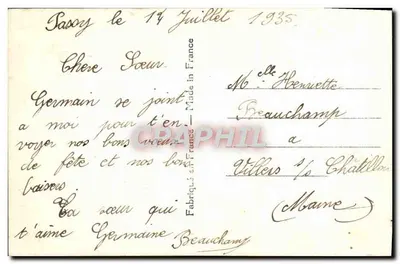 Passy le 14 Juillet 1935
Chère Sœur
Germain se joint
a moi pour t'en
voyer nos bons vœux
de fête et nos bons
baisers.
Ta sœur qui
t'aime Germaine Beauchamp
Fabriqué en France — Made in France
CPAPHIL
Melle Henriette
Beauchamp
a
Villers s/s Châtillon
(Marne)